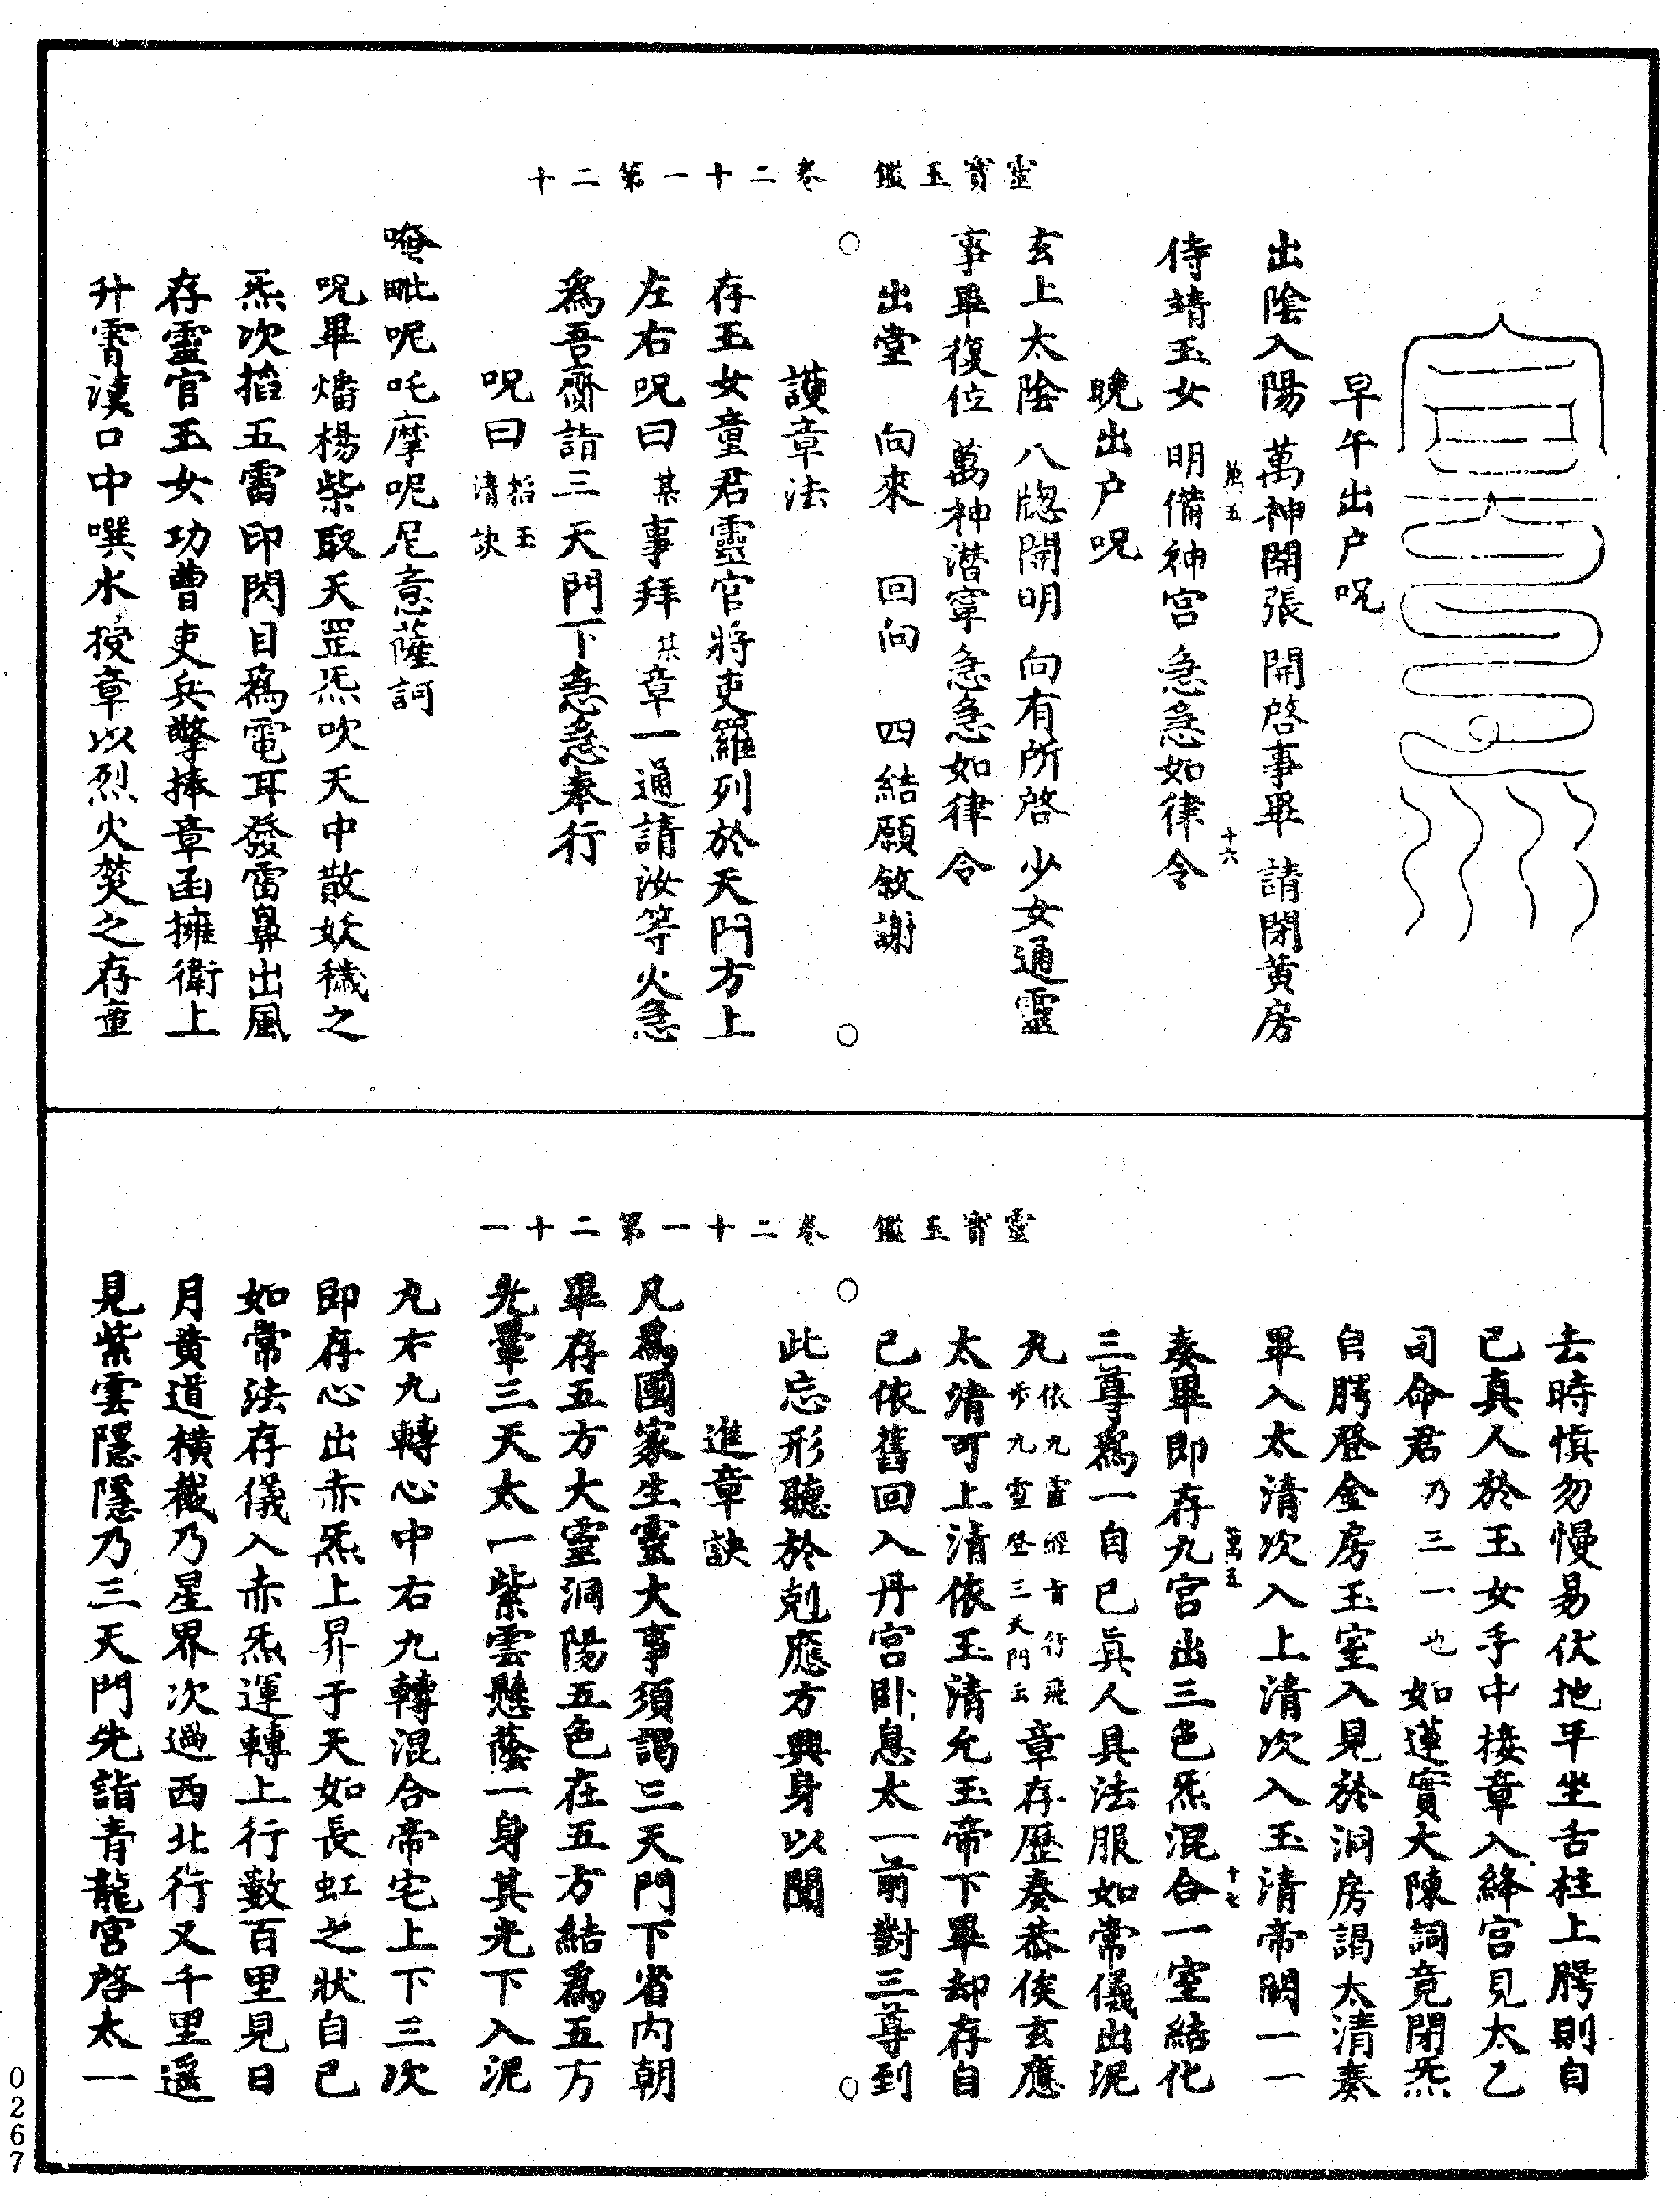 靈寶玉鑑　卷二十一第二十
早午出户呪
出陰入陽　萬神開張　開啓事畢　請閉黄房
侍靖玉女　明備神宫　急急如律令
萬五　十六
晚出户呪
玄上太陰　八牕開明　向有所啓　少女通靈
事畢復位　萬神潜寧　急急如律令
出堂　向來　回向　四結願敘謝
護章法
存玉女童君靈官將吏羅列於天門方上
左右呪曰某事拜某章一通請汝等火急
爲吾齎詣三天門下急急奉行
呪曰掐玉清訣
唵毗呢吒摩呢尼意薩訶
呪畢燔楊柴取天罡炁吹天中散妖穢之
炁次掐五雷印閃目爲電耳發雷鼻出風
存靈官玉女功曹吏兵擎捧章函擁衛上
升霄漢口中噀水授章以烈火焚之存童
靈寶玉鑑　卷二十一第二十一
去時慎勿慢易伏地平坐舌柱上腭則自
己真人於玉女手中接章入絳宫見太乙
司命君乃三一也如蓮實大陳詞竟閉炁
自腭登金房玉室入見於洞房謁太清奏
畢入太清次入上清次入玉清帝闕一一
萬五　十七
奏畢即存九宫出三色炁混合一室結化
三尊爲一自己真人具法服如常儀出泥
丸依九靈經旨行飛步九靈登三天門云章存歷奏恭俟玄應
太靖可上清依玉清允玉帝下畢却存自
已依舊回入丹宫卧息太一前對三尊到
此忘形聽於剋應方興身以聞
進章訣
凡爲國家生靈大事須謁三天門下省内朝
畢存五方大靈洞陽五色在五方結爲五方
光暈三天太一紫雲懸蔭一身其光下入泥
丸左九轉心中右九轉混合帝宅上下三次
即存心出赤炁上昇于天如長虹之狀自己
如常法存儀入赤炁運轉上行數百里見日
月黄道横截乃星界次過西北行又千里遥
見紫雲隱隱乃三天門先詣青龍宫啓太一
0267